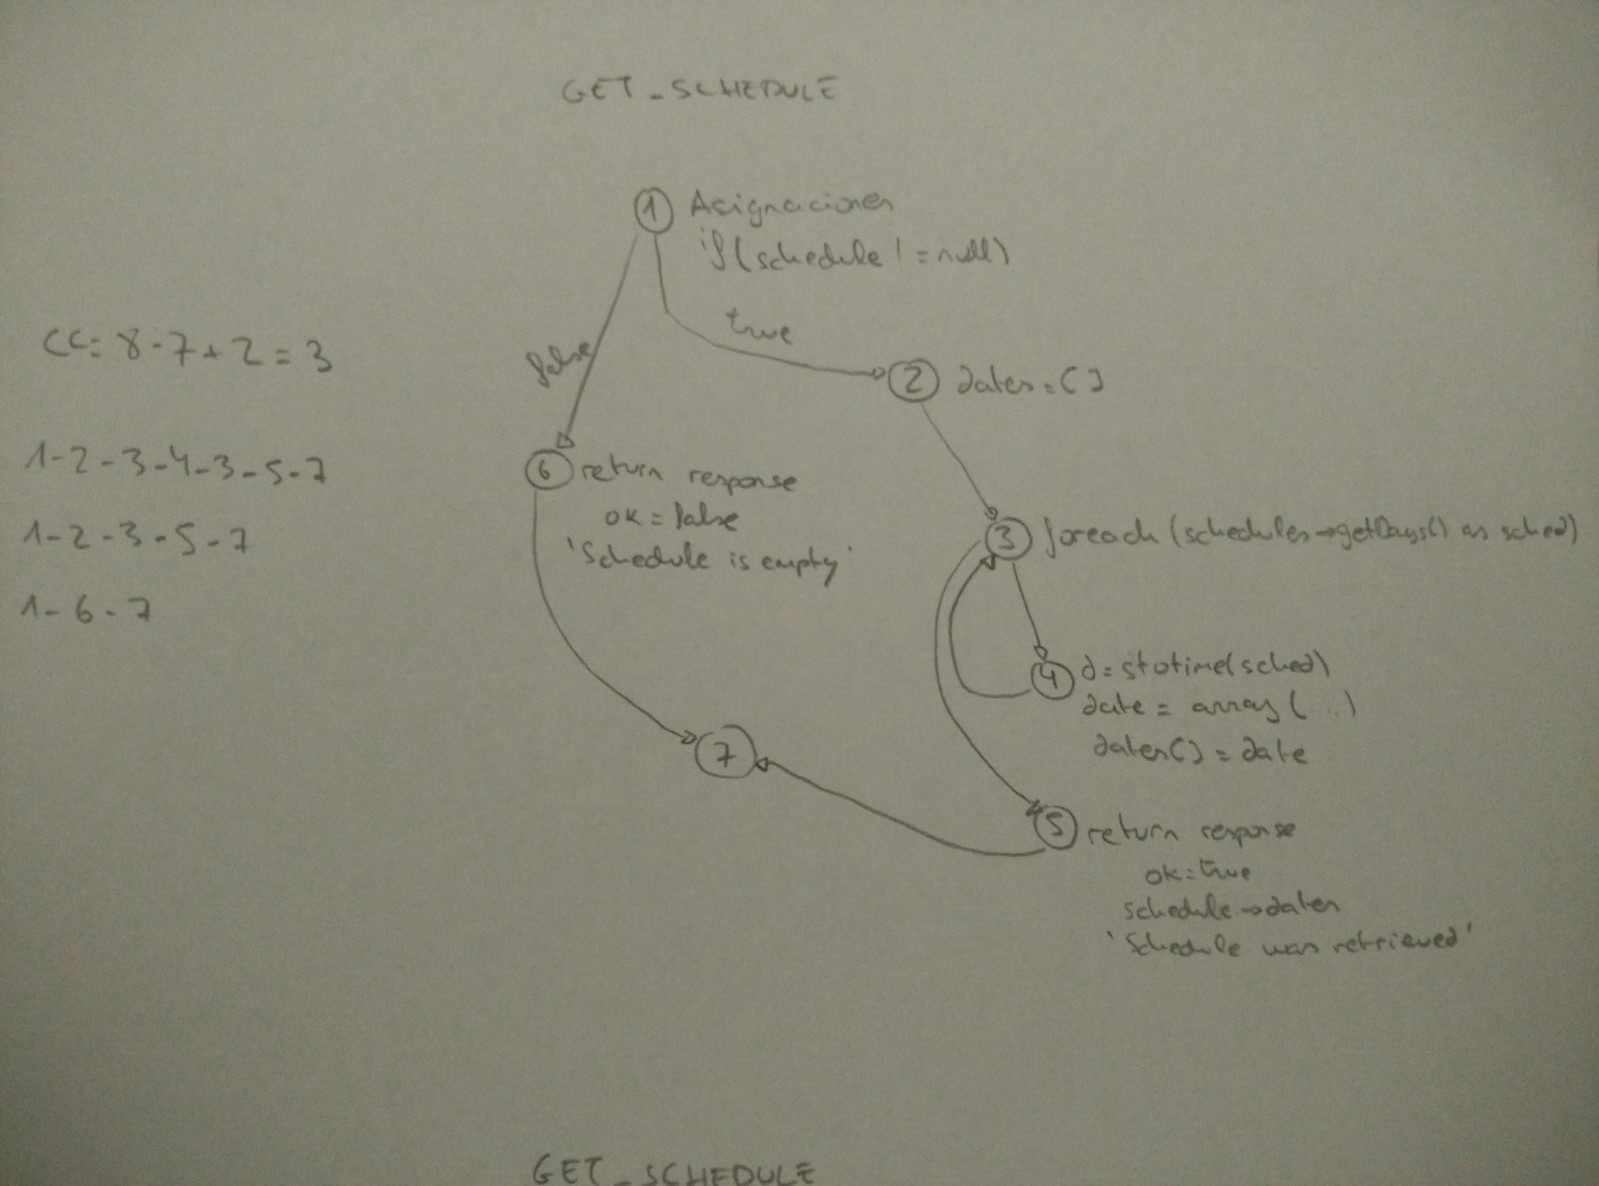 GET_SCHEDULE
1 Asignaciones
if(schedule != null)
true
false
CC= 8-7+2=3
2 dates=[]
1-2-3-4-3-5-7
6 return response
ok=false
'Schedule is empty'
1-2-3-5-7
3 foreach (schedules→getDays() as sched)
1-6-7
4 d=stotime(sched)
date = array(...)
dates[]=date
7
5 return response
ok=true
schedule→dates
'Schedule was retrieved'
GET_SCHEDULE